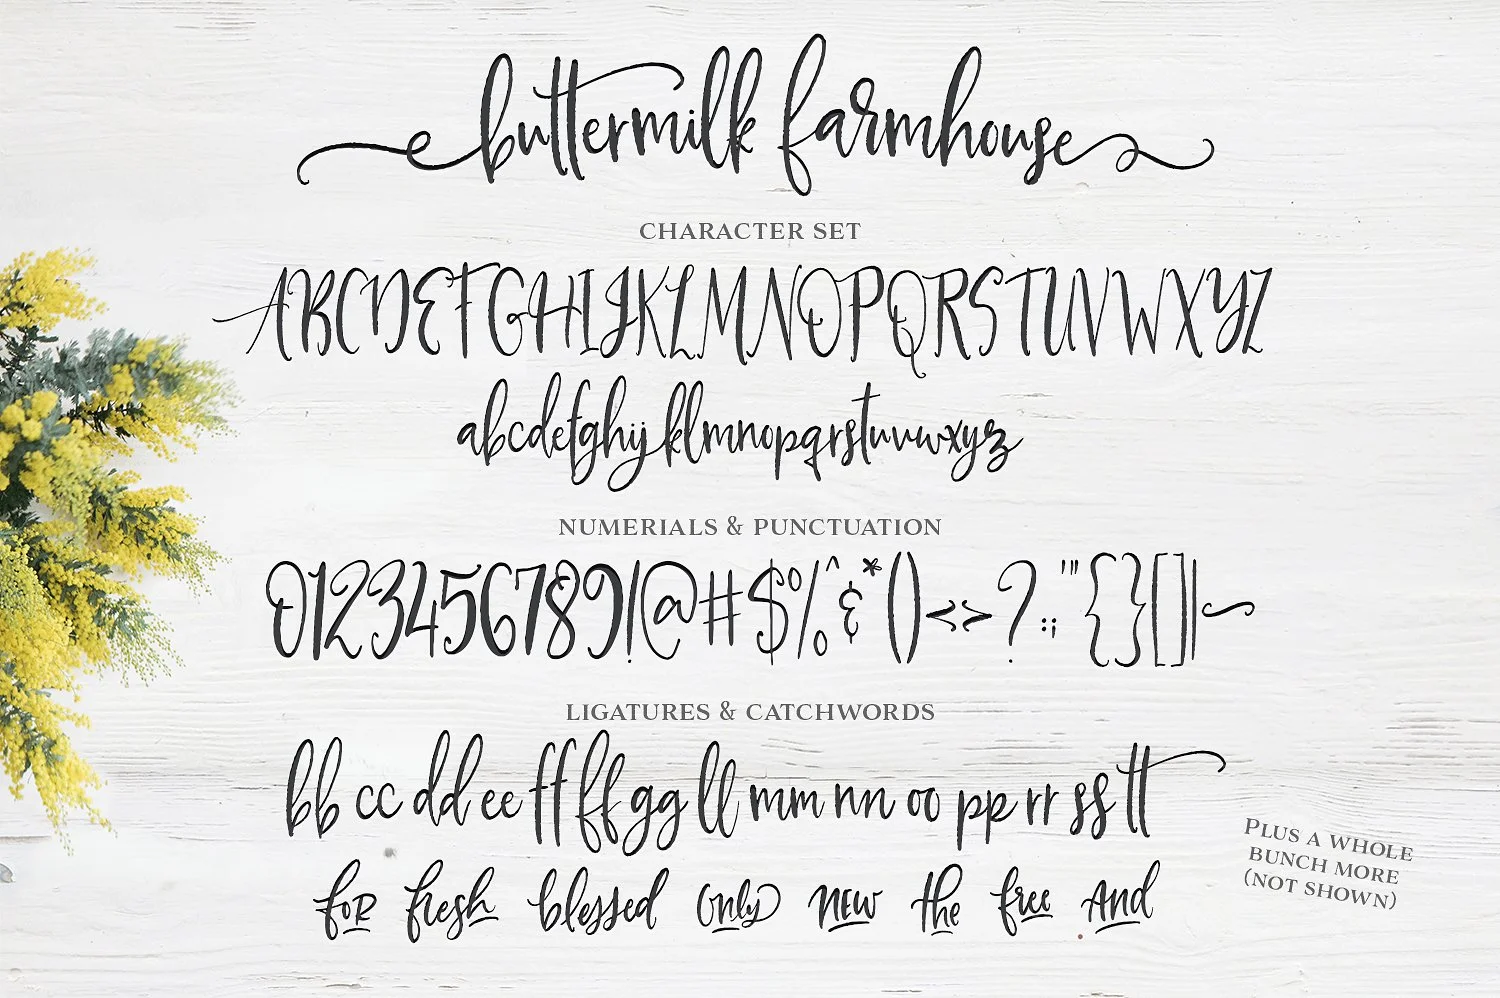 buttermilk farmhouse
CHARACTER SET
ABCDEFGHIJKLMNOPQRSTUVWXYZ
abcdefghijklmnopqrstuvwxyz
NUMERIALS & PUNCTUATION
0123456789!@#$%^&*()<>?:;'"{}[]|~
LIGATURES & CATCHWORDS
bb cc dd ee ff ff gg ll mm nn oo pp rr ss tt
for fresh blessed only new the free And
PLUS A WHOLE
BUNCH MORE
(NOT SHOWN)